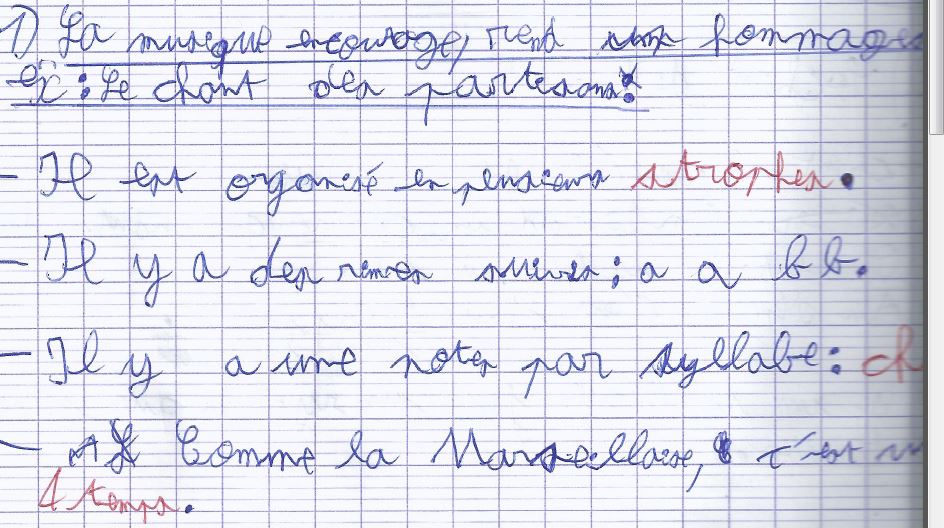 1) La musique encourage, rend hommage
ex : Le chant des partisans :
- Il est organisé en plusieurs strophes.
- Il y a des rimes suivies : a a b b.
- Il y a une notes par syllabe : ch
- Comme la Marseillaise, c'est un
4 temps.